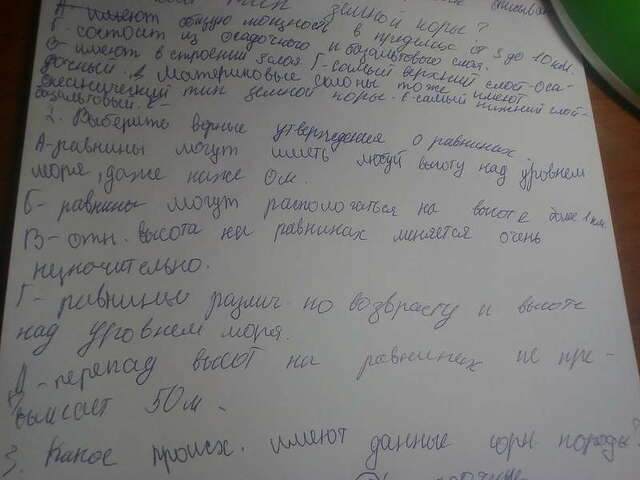 тип земной коры?
А-имеют общую мощность в пределах от 3 до 10 км.
Б-состоит из осадочного и базальтового слоя.
В-имеют в строении 3 слоя. Г-самый верхний слой-оса-
дочный. Д Материковые склоны тоже имеют
океанический тип земной коры. Е-самый нижний слой-
базальтовый.
2. Выберить верные утверждения о равнинах.
А-равнины могут иметь любую высоту над уровнем
моря, даже ниже 0м.
Б-равнины могут распологаться на высоте более 1 км.
В-отн. высота на равнинах меняется очень
незночительно.
Г-равнины различ. по возврасту и высоте
над уровнем моря.
Д-перепад высот на равнинах не пре-
вышает 50м.
3. Какое происх. имеют данные горн. породы?